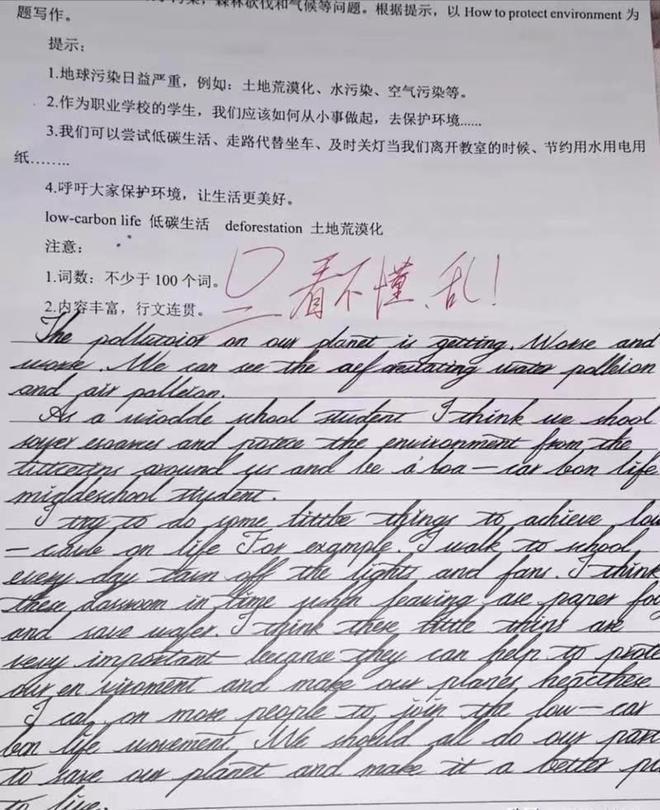 污染，森林砍伐和气候等问题。根据提示，以 How to protect environment 为
题写作。
提示：
1.地球污染日益严重，例如：土地荒漠化、水污染、空气污染等。
2.作为职业学校的学生，我们应该如何从小事做起，去保护环境......
3.我们可以尝试低碳生活、走路代替坐车、及时关灯当我们离开教室的时候、节约用水用电用
纸........
4.呼吁大家保护环境，让生活更美好。
low-carbon life 低碳生活 deforestation 土地荒漠化
注意：
1.词数：不少于 100 个词。
2.内容丰富，行文连贯。
看不懂、乱！
The on our planet is getting. Worse and
worse. We can see the water
and air
As a school student I think we
and the environment from the
around us and be a bon life
student.
I try to do some things to achieve low
on life For example. I walk to school
every day turn off the lights and fans. I think
these in time when leaving are paper
and save water. I think these little are
very important because they can help to prote
our en viroment and make our
I on more people to join the low-car
bon life movement. We should all do our part
to save our planet and make it a better
to live.